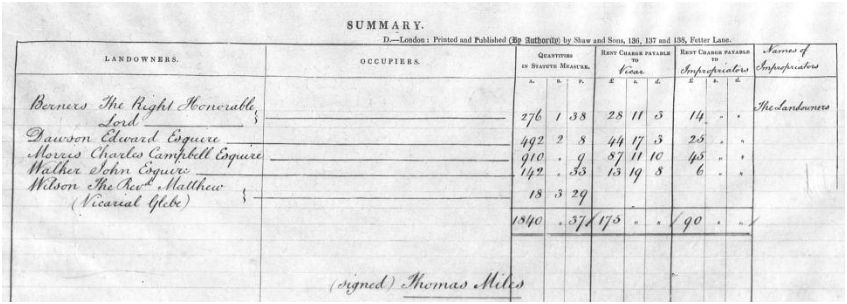 SUMMARY.
D.—London: Printed and Published (By Authority) by Shaw and Sons, 136, 137 and 138, Fetter Lane.
LANDOWNERS. OCCUPIERS. QUANTITIES IN STATUTE MEASURE. RENT CHARGE PAYABLE TO Vicar RENT CHARGE PAYABLE TO Impropriators Names of Impropriators
a. r. p. £ s. d. £ s. d.
Berners The Right Honorable
Lord } 276 1 38 28 11 3 14 " " The Landowners
Dawson Edward Esquire 492 2 8 44 17 3 25 " "
Morris Charles Campbell Esquire 910 " 9 87 11 10 45 " "
Walker John Esquire 142 " 33 13 19 8 6 " "
Wilson The Revd. Matthew
(Vicarial Glebe) } 18 3 29
1840 " 37 175 " " 90 " "
(signed) Thomas Miles